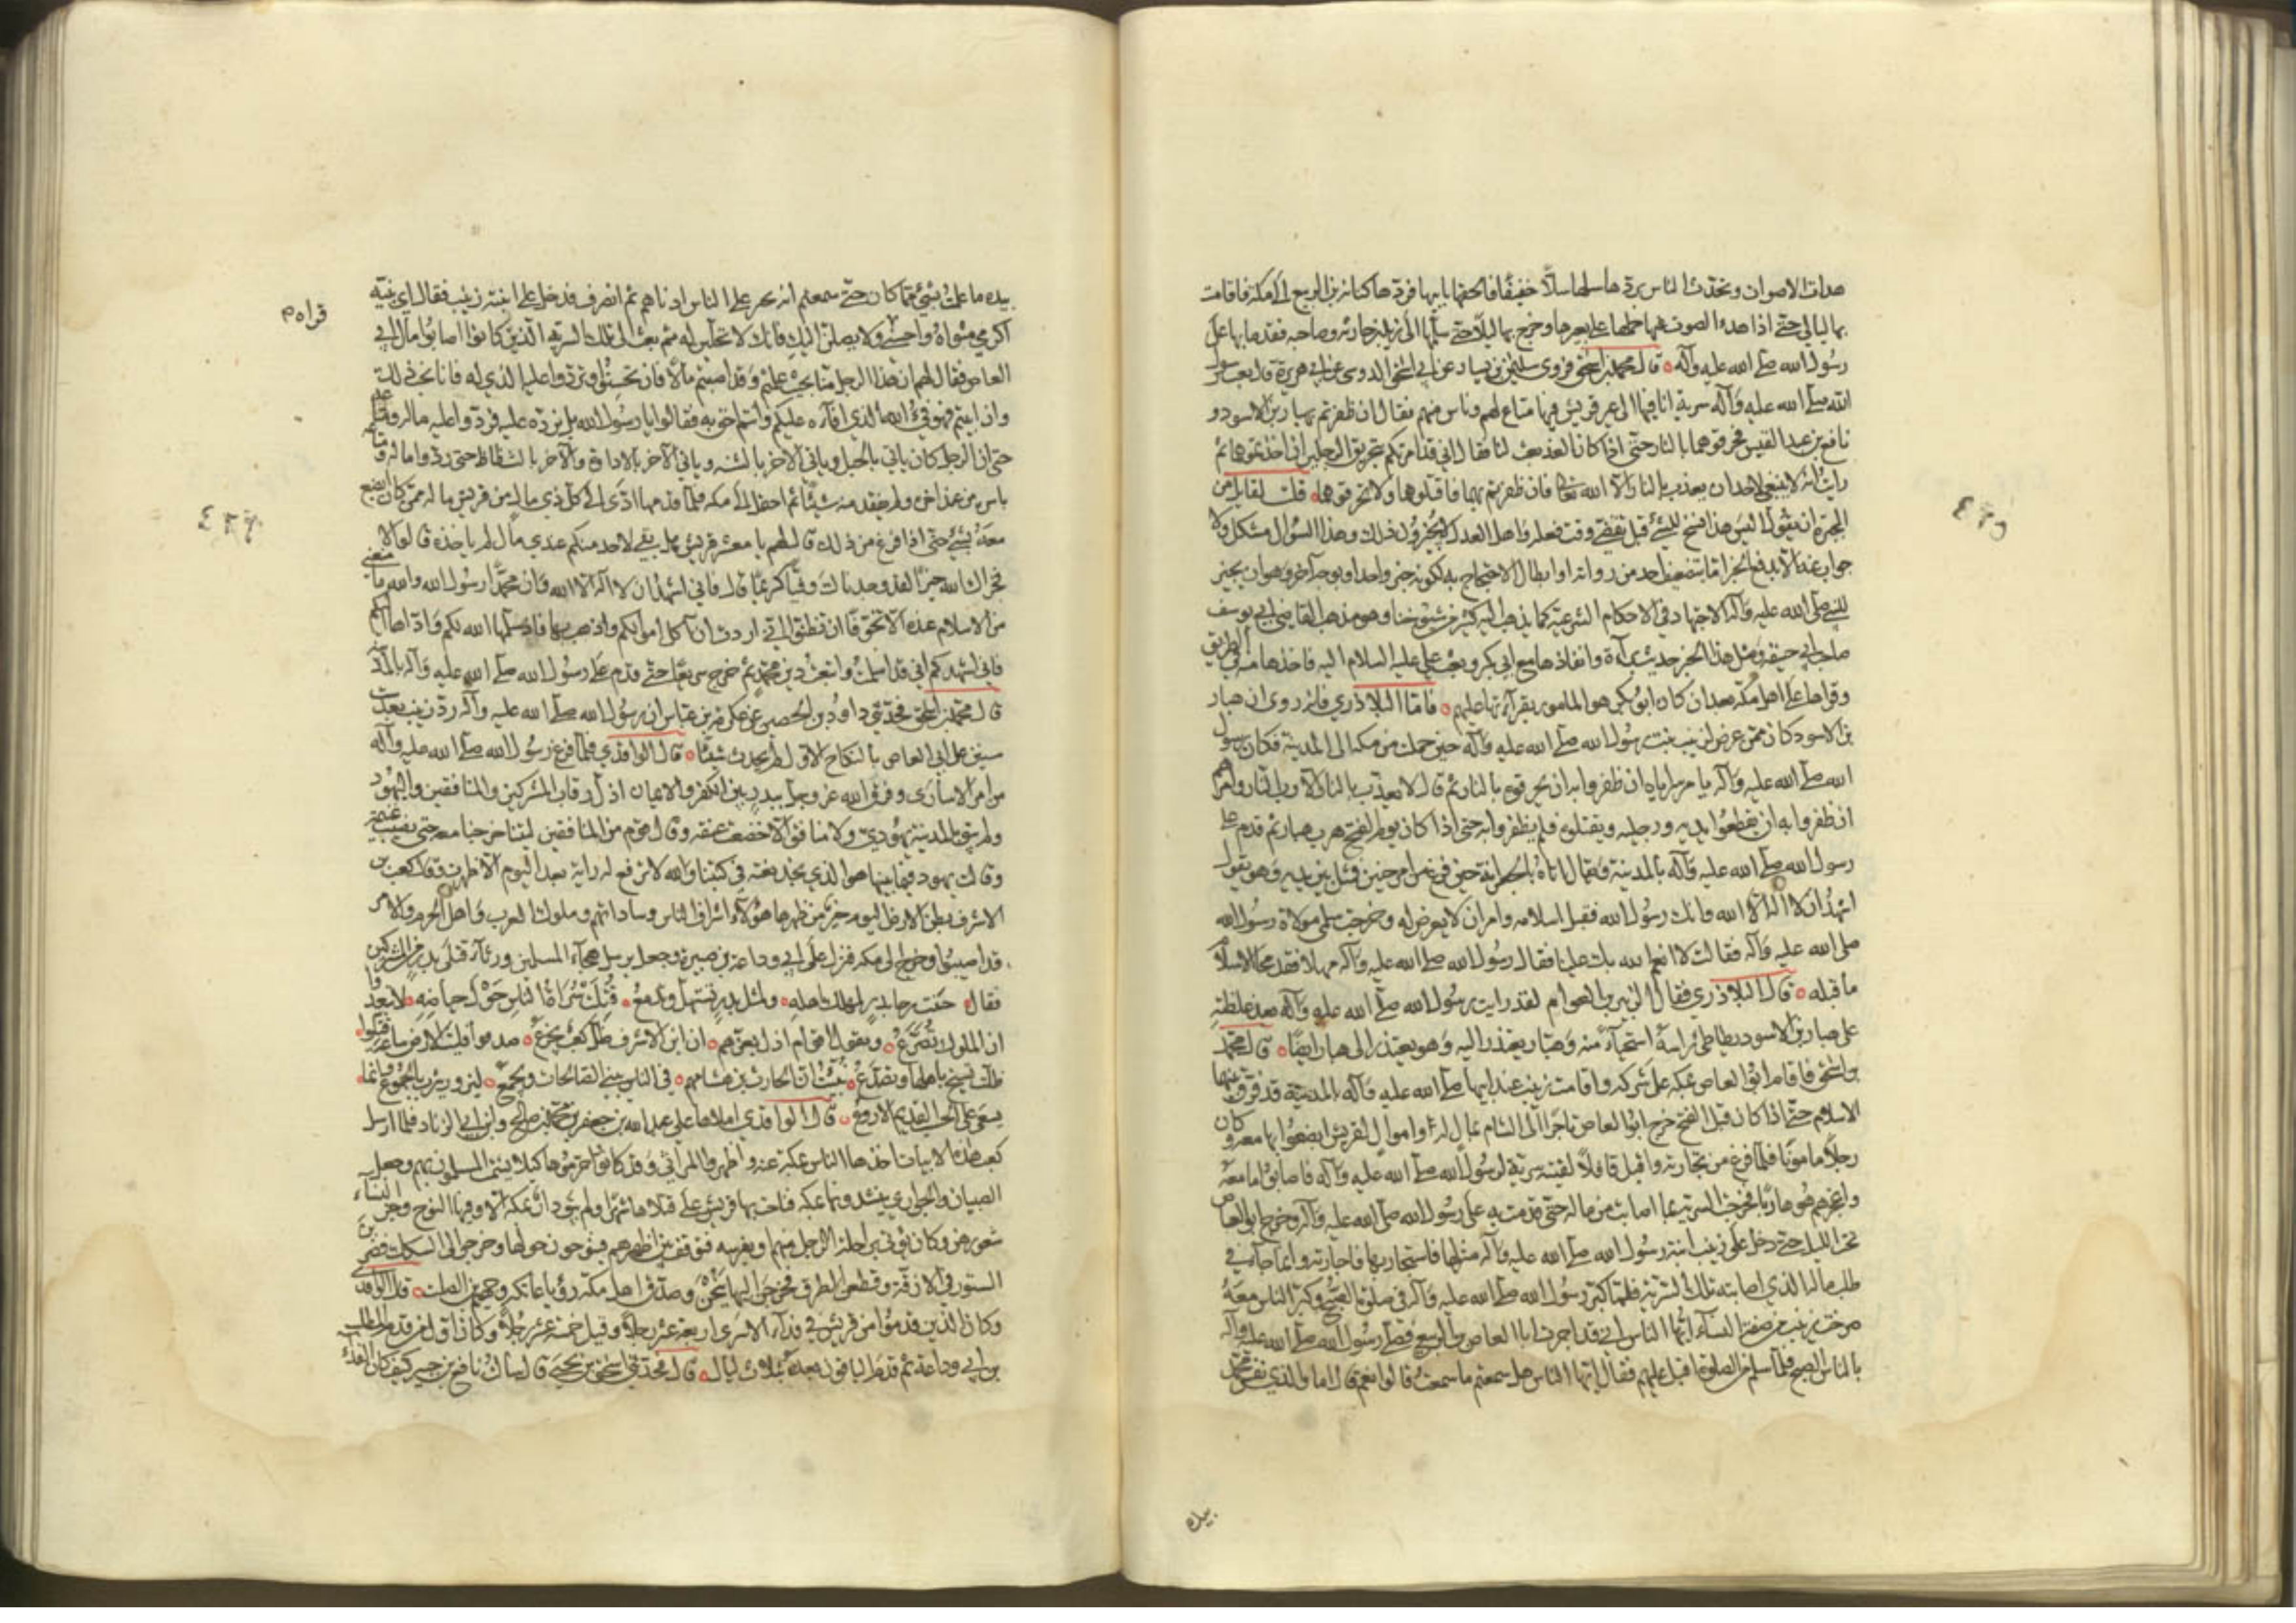 هدات الاصوات وتحدث الناس بردها سلها سلا خفيفا فالحقها بابيها فردها كنانة بن الربيع الى مكة فاقامت
بها ليالي حتى اذا هدء الصوت عنها حملها على بعيرها وخرج بها ليلا حتى سلمها الى زيد بن حارثة وصاحبه فقدما بها على
رسول الله صلى الله عليه وآله قال محمد بن اسحق فروى سليمن بن يسار عن ابي اسحق الدوسي عن ابي هريرة قال بعث رسول
الله صلى الله عليه وآله سرية انا فيها الى عير قريش فيها متاع لهم وناس منهم فقال ان ظفرتم بهبار بن الاسود و
نافع بن عبد القيس فحرقوهما بالنار حتى اذا كان الغد بعث لنا فقال اني قد امرتكم بتحريق الرجلين ان اخذتموهما ثم
رايت انه لا ينبغي لاحد ان يعذب بالنار الا الله تعالى فان ظفرتم بهما فاقتلوهما ولا تحرقوهما قلت لقايل من
المجبرة ان يقول اليس هذا نسخ للشيء قبل تقضي وقت فعله واهل العدل لا يجيزون ذلك وهذا السؤال مشكل ولا
جواب عنه الا بدفع الخبر اما بتضعيف احد من رواته او ابطال الاحتجاج به لكونه خبر واحد او بوجه آخر وهو ان نجيز
للنبي صلى الله عليه وآله الاجتهاد في الاحكام الشرعية كما يذهب اليه كثير من شيوخنا وهو مذهب القاضي ابي يوسف
صاحب ابي حنيفة ومثل هذا الخبر حديث براءة وانفاذها مع ابي بكر وبعث علي عليه السلام اليه فاخذها منه في الطريق
وقراها على اهل مكة بعد ان كان ابو بكر هو المامور بقرآءتها عليهم فاما البلاذري فانه روى ان هبار
بن الاسود كان ممن عرض لزينب بنت رسول الله صلى الله عليه وآله حين حملت من مكة الى المدينة فكان رسول
الله صلى الله عليه وآله يامر سراياه ان ظفروا به ان يحرقوه بالنار ثم قال لا يعذب بالنار الا رب النار وامرهم
ان ظفروا به ان يقطعوا يديه ورجليه ويقتلوه فلم يظفروا به حتى اذا كان يوم الفتح هرب هبار ثم قدم على
رسول الله صلى الله عليه وآله بالمدينة ويقال اتاه بالجعرانة حين فرغ من امر حنين فمثل بين يديه وهو يقول
اشهد ان لا اله الا الله وانك رسول الله فقبل اسلامه وامر ان لا يعرض له وخرجت سلمى مولاة رسول الله
صلى الله عليه وآله فقالت لا انعم الله بك عينا فقال رسول الله صلى الله عليه وآله مهلا فقد محا الاسلام
ما قبله قال البلاذري فقال الزبير بن العوام لقد رايت رسول الله صلى الله عليه وآله بعد غلظته
على هبار بن الاسود يطاطئ راسه استحيآء منه وهبار يعتذر اليه وهو يعتذر الى هبار ايضا قال محمد
بن اسحق فاقام ابو العاص بمكة على شركه واقامت زينب عند ابيها صلى الله عليه وآله بالمدينة قد فرق بينهما
الاسلام حتى اذا كان قبل الفتح خرج ابو العاص تاجرا الى الشام بمال له واموال لقريش ابضعوا بها معه وكان
رجلا مامونا فلما فرغ من تجارته واقبل قافلا لقيته سرية لرسول الله صلى الله عليه وآله فاصابوا ما معه
واعجزهم هو هاربا فخرجت السرية بما اصابت من ماله حتى قدمت به على رسول الله صلى الله عليه وآله وخرج ابو العاص
تحت الليل حتى دخل على زينب ابنة رسول الله صلى الله عليه وآله منزلها فاستجار بها فاجارته وانما جآء في
طلب ماله الذي اصابته تلك السرية فلما كبر رسول الله صلى الله عليه وآله في صلوة الصبح وكبر الناس معه
صرخت زينب من صفة النسآء ايها الناس اني قد اجرت ابا العاص بن الربيع فصلى رسول الله صلى الله عليه وآله
بالناس الصبح فلما سلم من الصلوة اقبل عليهم فقال ايها الناس هل سمعتم ما سمعت قالوا نعم قال اما والذي نفس محمد
بيده
بيده ما علمت بشيء مما كان حتى سمعتم انه يجير على الناس ادناهم ثم انصرف فدخل على ابنته زينب فقال اي بنية
اكرمي مثواه واحسني ولا يصلن اليك فانك لا تحلين له ثم بعث الى تلك السرية الذين كانوا اصابوا مال ابي
العاص فقال لهم ان هذا الرجل منا بحيث علمتم وقد اصبتم مالا فان تحسنوا وتردوا عليه الذي له فانا نحب ذلك
وان ابيتم فهو فيء الله الذي افآءه عليكم وانتم احق به فقالوا يا رسول الله بل نرده عليه فردوا عليه ماله ومتاعه
حتى ان الرجل كان ياتي بالحبل وياتي الآخر بالشنة وياتي الآخر بالاداوة والآخر بالشظاظ حتى ردوا ماله ومتاعه
باسره من عند آخره ولم يفقد منه شيئا ثم احتمل الى مكة فلما قدمها ادى الى كل ذي مال من قريش ماله ممن كان ابضع
معه بشيء حتى اذا فرغ من ذلك قال لهم يا معشر قريش هل بقي لاحد منكم عندي مال لم ياخذه قالوا لا
فجزاك الله خيرا لقد وجدناك وفيا كريما قال فاني اشهد ان لا اله الا الله وان محمدا رسول الله والله ما منعني
من الاسلام عنده الا تخوفا ان تظنوا اني اردت ان آكل اموالكم واذهب بها فاذ سلمها الله لكم واداها اليكم
فاني اشهدكم اني قد اسلمت واتبعت دين محمد ثم خرج سريعا حتى قدم على رسول الله صلى الله عليه وآله بالمدينة
قال محمد بن اسحق فحدثني داود بن الحصين عن عكرمة عن ابن عباس ان رسول الله صلى الله عليه وآله رد زينب بعد ست
سنين على ابي العاص بالنكاح الاول لم يحدث شيئا قال الواقدي فلما فرغ رسول الله صلى الله عليه وآله
من امر الاسارى وفرق الله عز وجل ببدر بين الكفر والايمان اذل رقاب المشركين والمنافقين واليهود
ولم يبق بالمدينة يهودي ولا منافق الا خضعت عنقه وقال قوم من المنافقين ليتنا خرجنا معه حتى نصيب غنيمة
وقالت يهود فيما بينها هو الذي نجد نعته في كتبنا والله لا ترفع له راية بعد اليوم الا ظهرت وقال كعب بن
الاشرف بطن الارض اليوم خير من ظهرها هؤلآء اشراف الناس وساداتهم وملوك العرب واهل الحرم والامن
قد اصيبوا وخرج الى مكة فنزل على ابي وداعة بن صبيرة وجعل يرسل هجآء المسلمين ورثآء قتلى بدر من المشركين
فقال طحنت رحا بدر لمهلك اهله ولمثل بدر تستهل وتدمع قتلت سراة الناس حول حياضه لا تبعدوا
ان الملوك تصرع ويقول اقوام اذل بعزهم ان ابن الاشرف ظل كعبا يجزع صدقوا فليت الارض ساعة قتلوا
ظلت تسيخ باهلها وتصدع نبئت ان الحارث بن هشامهم في الناس يبني الصالحات ويجمع ليزور يثرب بالجموع وانما
يسعى على الحسب القديم الاروع قال الواقدي املاها علي عبد الله بن جعفر ومحمد بن صالح وابن ابي الزناد فلما ارسل
كعب هذه الابيات اخذها الناس بمكة عنه واظهروا المراثي وقد كانوا حرموها كيلا يشمت المسلمون بهم وجعل
الصبيان والجواري ينشدونها بمكة فناحت بها قريش على قتلاها شهرا ولم تبق دار بمكة الا وفيها النوح وجز النسآء
شعورهن وكان يؤتى براحلة الرجل منهم او بفرسه فتوقف بين اظهرهم فينوحون حولها وخرجوا الى السكك وضربن
الستور في الازقة وقطعوا الطرق فخرجن اليها ينحن وصدق اهل مكة رؤيا عاتكة وجهيم بن الصلت قال الواقدي
وكان الذين قدموا من قريش في فدآء الاسرى اربعة عشر رجلا وقيل خمسة عشر رجلا وكان اول من قدم المطلب
بن ابي وداعة ثم قدم الباقون بعده بثلاث ليال قال فحدثني اسحق بن يحيى قال سالت نافع بن جبير كيف كان الفدآء